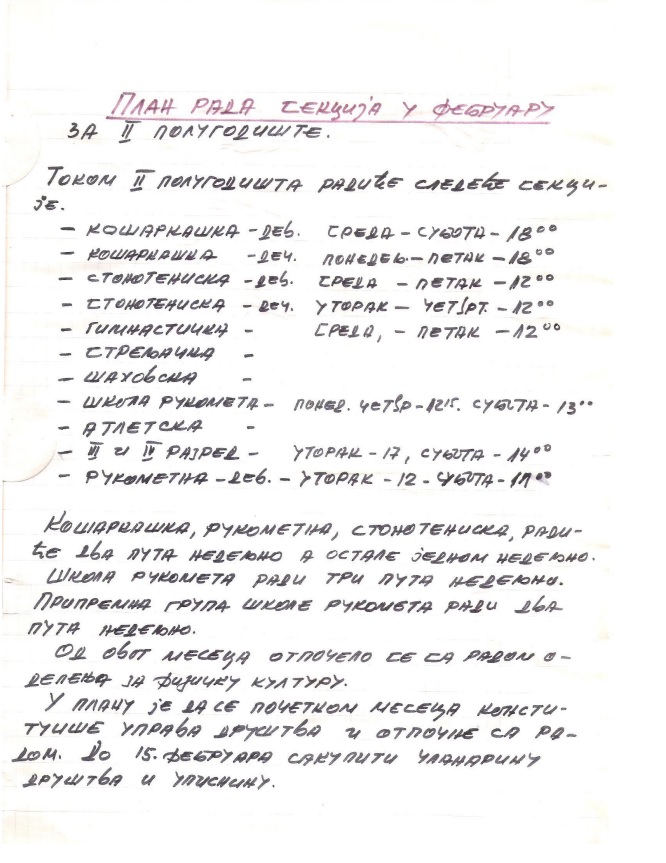 ПЛАН РАДА СЕКЦИЈА У ФЕБРУАРУ
ЗА II ПОЛУГОДИШТЕ.
ТОКОМ II ПОЛУГОДИШТА РАДИЋЕ СЛЕДЕЋЕ СЕКЦИ-
ЈЕ.
— КОШАРКАШКА - ДЕВ. СРЕДА - СУБОТА - 18⁰⁰
— КОШАРКАШКА - ДЕЧ. ПОНЕДЕЉ - ПЕТАК - 18⁰⁰
— СТОНОТЕНИСКА - ДЕВ. СРЕДА - ПЕТАК - 12⁰⁰
— СТОНОТЕНИСКА - ДЕЧ. УТОРАК — ЧЕТВРТ. - 12⁰⁰
— ГИМНАСТИЧКА - СРЕДА, - ПЕТАК - 12⁰⁰
— СТРЕЉАЧКА -
— ШАХОВСКА -
— ШКОЛА РУКОМЕТА - ПОНЕД. ЧЕТВР - 12¹⁵. СУБОТА - 13⁰⁰
— АТЛЕТСКА -
— III И IV РАЗРЕД - УТОРАК - 17, СУБОТА - 14⁰⁰
— РУКОМЕТНА - ДЕВ. - УТОРАК - 12 - СУБОТА -
КОШАРКАШКА, РУКОМЕТНА, СТОНОТЕНИСКА, РАДИ-
ЋЕ ДВА ПУТА НЕДЕЉНО А ОСТАЛЕ ЈЕДНОМ НЕДЕЉНО.
ШКОЛА РУКОМЕТА РАДИ ТРИ ПУТА НЕДЕЉНО.
ПРИПРЕМНА ГРУПА ШКОЛЕ РУКОМЕТА РАДИ ДВА
ПУТА НЕДЕЉНО.
ОД ОВОГ МЕСЕЦА ОТПОЧЕЛО СЕ СА РАДОМ О-
ДЕЛЕЊА ЗА ФИЗИЧКУ КУЛТУРУ.
У ПЛАНУ ЈЕ ДА СЕ ПОЧЕТКОМ МЕСЕЦА КОНСТИ-
ТУИШЕ УПРАВА ДРУШТВА И ОТПОЧНЕ СА РА-
ДОМ. ДО 15. ФЕБРУАРА САКУПИТИ ЧЛАНАРИНУ
ДРУШТВА И УПИСНИНУ.